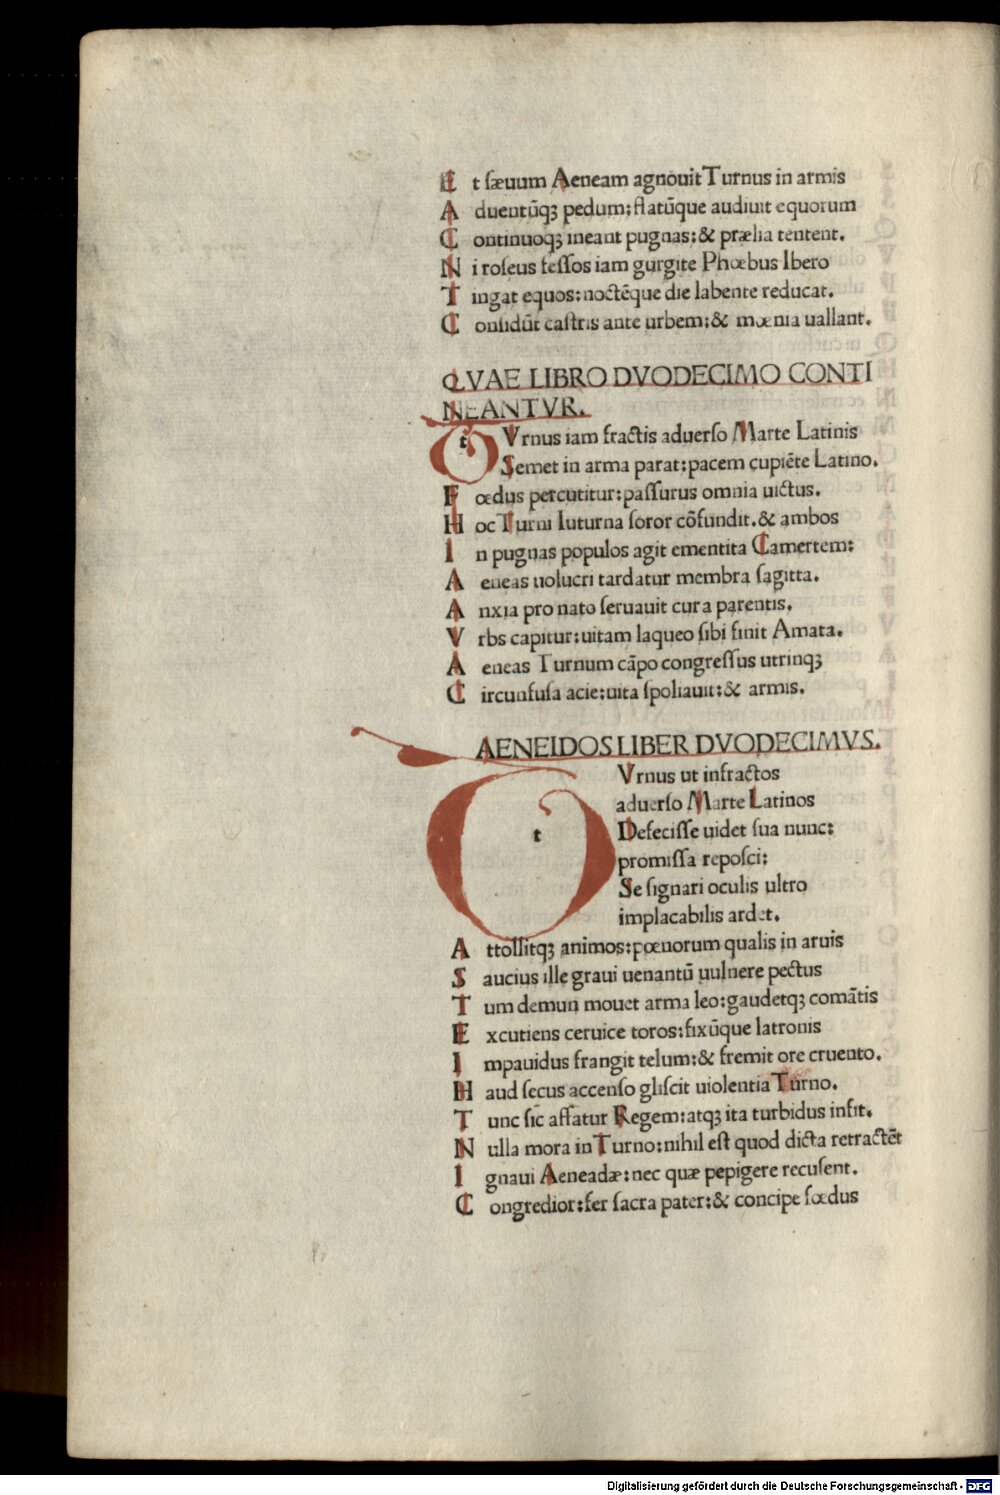 Et sæuum Aeneam agnouit Turnus in armis
Aduentūqꝫ pedum; flatūque audiuit equorum
Continuoqꝫ ineant pugnas:& prælia tentent.
Ni roseus fessos iam gurgite Phœbus Ibero
Tingat equos:noctēque die labente reducat.
Considūt castris ante urbem:& mœnia uallant.
QVAE LIBRO DVODECIMO CONTI
NEANTVR.
tVrnus iam fractis aduerso Marte Latinis
Semet in arma parat:pacem cupiēte Latino.
Fœdus percutitur:passurus omnia uictus.
Hoc Turni Iuturna soror cōfundit.& ambos
In pugnas populos agit ementita Camertem:
Aeneas uolucri tardatur membra sagitta.
Anxia pro nato seruauit cura parentis.
Vrbs capitur:uitam laqueo sibi finit Amata.
Aeneas Turnum cāpo congressus utrinqꝫ
Circunfusa acie:uita spoliauit:& armis.
AENEIDOS LIBER DVODECIMVS.
tVrnus ut infractos
aduerso Marte Latinos
Defecisse uidet sua nunc:
promissa reposci:
Se signari oculis ultro
implacabilis ardet.
Attollitqꝫ animos:pœnorum qualis in aruis
Saucius ille graui uenantū uulnere pectus
Tum demun mouet arma leo:gaudetqꝫ comātis
Excutiens ceruice toros:fixūque latronis
Impauidus frangit telum:& fremit ore cruento.
Haud secus accenso gliscit uiolentia Turno.
Tunc sic affatur Regem:atqꝫ ita turbidus infit.
Nulla mora in Turno:nihil est quod dicta retractēt
Ignaui Aeneadæ:nec quæ pepigere recusent.
Congredior:fer sacra pater:& concipe fœdus
Digitalisierung gefördert durch die Deutsche Forschungsgemeinschaft - DFG